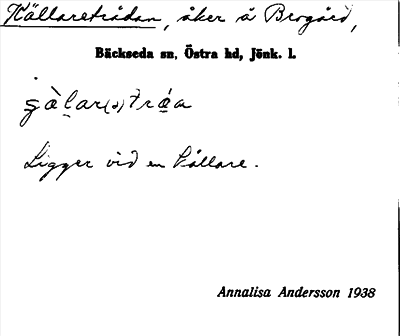 Källareträdan, åker å Brogård,
Bäckseda sn, Östra hd, Jönk. l.
Ligger vid en källare.
Annalisa Andersson 1938